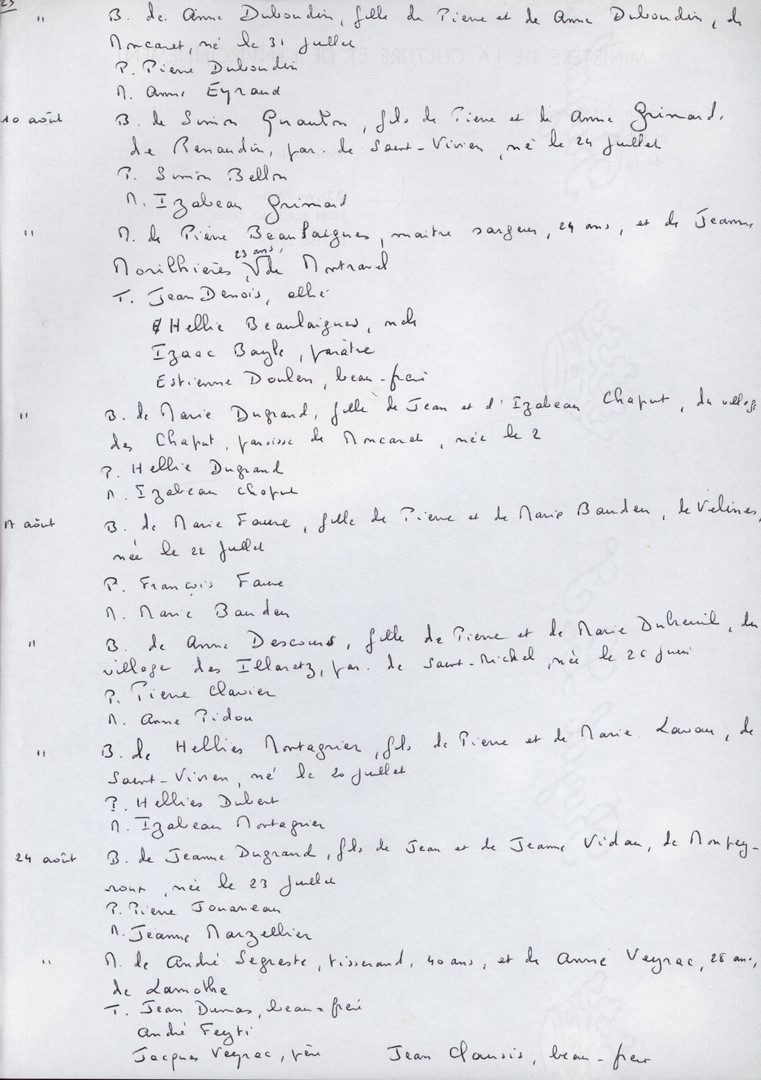 23
" B. de Anne Duboudin, fille de Pierre et de Anne Duboudin, de
Moncaret, né le 31 juillet
P. Pierre Duboudin
M. Anne Eyraud
10 août B. de Simon Quanton, fils de Pierre et de Anne Grimard,
de Renaudin, par. de Saint-Vivien, né le 24 juillet
P. Simon Bellon
M. Izabeau Grimard
" M. de Pierre Beaulaigues, maitre sargeur, 24 ans, et de Jeanne
Morilhières, 23 ans, de Montravel
T. Jean Denois, allié
Hellie Beaulaigues, ncle
Izaac Bayle, parâtre
Estienne Doulen, beau-frère
" B. de Marie Dugrand, fille de Jean et d'Izabeau Chaput, du village
des Chaput, paroisse de Moncaret, née le 2
P. Hellie Dugrand
M. Izabeau Chaput
17 août B. de Marie Faure, fille de Pierre et de Marie Bauden, de Velines,
née le 22 juillet
P. François Faure
M. Marie Bauden
" B. de Anne Descours, fille de Pierre et de Marie Dubreuil, du
village des Illaretz, par. de Saint-Michel, née le 26 juin
P. Pierre Clavier
M. Anne Pidou
" B. de Hellies Montagnier, fils de Pierre et de Marie Lavau, de
Saint-Vivien, né le 20 juillet
P. Hellies Dubert
M. Izabeau Montagnier
24 août B. de Jeanne Dugrand, fils de Jean et de Jeanne Vidau, de Monpey-
roux, née le 23 juillet
P. Pierre Jouaneau
M. Jeanne Marzellier
" M. de André Segreste, tisserand, 40 ans, et de Anne Veyrac, 28 ans,
de Lamothe
T. Jean Dumas, beau-frère
André Feyti
Jacques Veyrac, père Jean Clausis, beau-frère